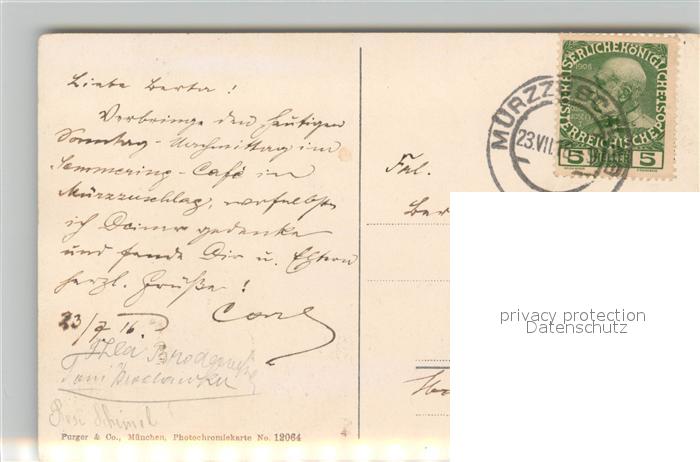 Liebe Berta!
Verbringe den heutigen
Sonntag-Nachmittag im
Semmering-Café in
Mürzzuschlag, woselbst
ich Deiner gedenke
und sende Dir u. Eltern
herzl. Grüße!
Carl
23/7 16.
Rosi
Purger & Co., München, Photochromiekarte No. 12064
KAISERLICHE KÖNIGLICHE
ÖSTERREICHISCHE POST
1908
5 5
MÜRZZUSCHLAG
23.VII.16
Frl.
Ber
privacy protection
Datenschutz